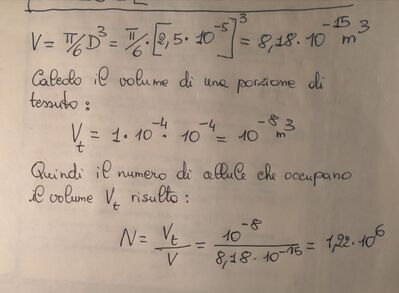 V = π/6 D³ = π/6 · [2,5 · 10⁻⁵]³ = 8,18 · 10⁻¹⁵ m³
Calcolo il volume di una porzione di
tessuto:
Vₜ = 1 · 10⁻⁴ · 10⁻⁴ = 10⁻⁸ m³
Quindi il numero di cellule che occupano
il volume Vₜ risulta:
N = Vₜ/V = 10⁻⁸/8,18 · 10⁻¹⁵ = 1,22 · 10⁶